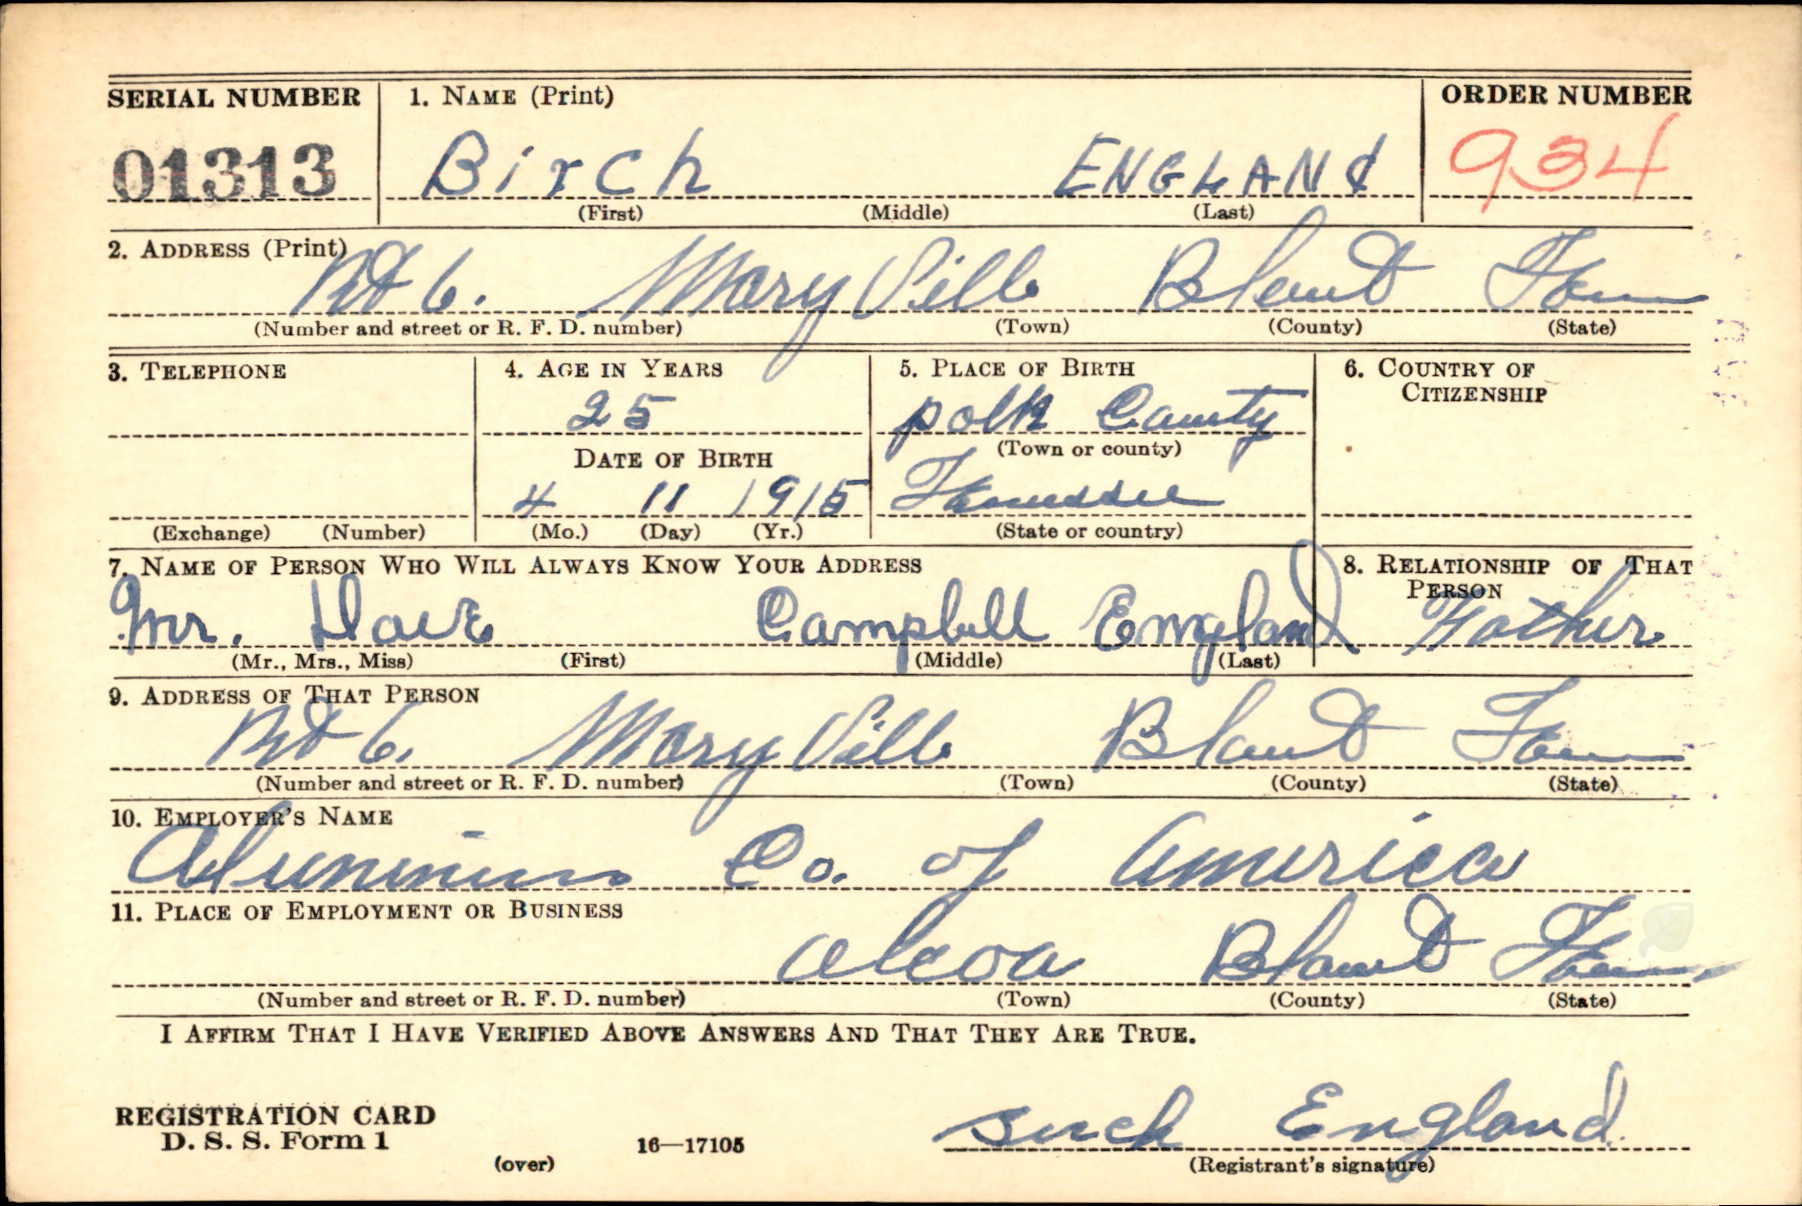 SERIAL NUMBER 1. NAME (Print) ORDER NUMBER
01313 Birch ENGLANd 934
(First) (Middle) (Last)
2. ADDRESS (Print)
Rt 6. MaryVille Blount Tenn
(Number and street or R. F. D. number) (Town) (County) (State)
3. TELEPHONE 4. AGE IN YEARS 5. PLACE OF BIRTH 6. COUNTRY OF CITIZENSHIP
25 polk County
DATE OF BIRTH (Town or county)
4 11 1915 Tennessee
(Exchange) (Number) (Mo.) (Day) (Yr.) (State or country)
7. NAME OF PERSON WHO WILL ALWAYS KNOW YOUR ADDRESS 8. RELATIONSHIP OF THAT PERSON
Mr. Campbell England Father
(Mr., Mrs., Miss) (First) (Middle) (Last)
9. ADDRESS OF THAT PERSON
Rt 6. MaryVille Blount Tenn
(Number and street or R. F. D. number) (Town) (County) (State)
10. EMPLOYER'S NAME
Aluminum Co. of America
11. PLACE OF EMPLOYMENT OR BUSINESS
Alcoa Blount Tenn
(Number and street or R. F. D. number) (Town) (County) (State)
I AFFIRM THAT I HAVE VERIFIED ABOVE ANSWERS AND THAT THEY ARE TRUE.
REGISTRATION CARD
D. S. S. Form 1 16—17105 Birch England
(over) (Registrant's signature)